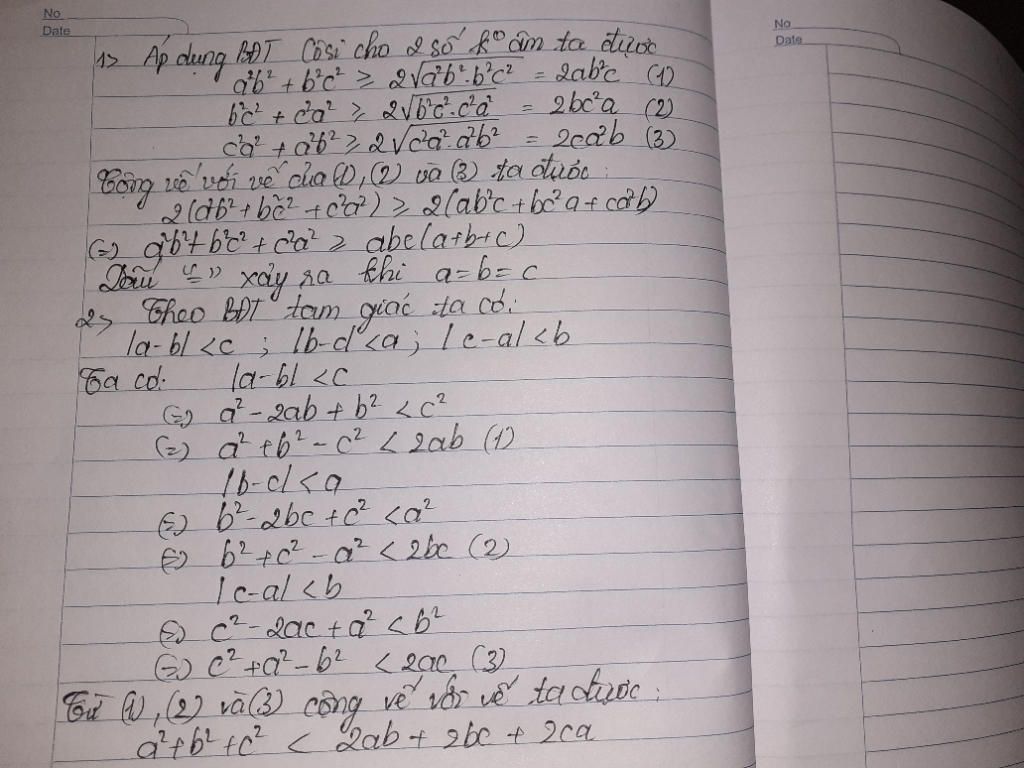 No
Date
No
Date
1> Áp dụng BĐT Côsi cho 2 số kº âm ta được
a²b² + b²c² ≥ 2√(a²b².b²c²) = 2ab²c (1)
b²c² + c²a² ≥ 2√(b²c².c²a²) = 2bc²a (2)
c²a² + a²b² ≥ 2√(c²a².a²b²) = 2ca²b (3)
Cộng vế với vế của (1), (2) và (3) ta được:
2(a²b² + b²c² + c²a²) ≥ 2(ab²c + bc²a + ca²b)
(=) a²b² + b²c² + c²a² ≥ abc(a+b+c)
Dấu "=" xảy ra khi a=b=c
2> Theo BĐT tam giác ta có:
|a-b| < c ; |b-c| < a ; |c-a| < b
Ta có: |a-b| < c
(=) a² - 2ab + b² < c²
(=) a² + b² - c² < 2ab (1)
|b-c| < a
(=) b² - 2bc + c² < a²
(=) b² + c² - a² < 2bc (2)
|c-a| < b
(=) c² - 2ac + a² < b²
(=) c² + a² - b² < 2ac (3)
Từ (1), (2) và (3) cộng vế với vế ta được:
a² + b² + c² < 2ab + 2bc + 2ca